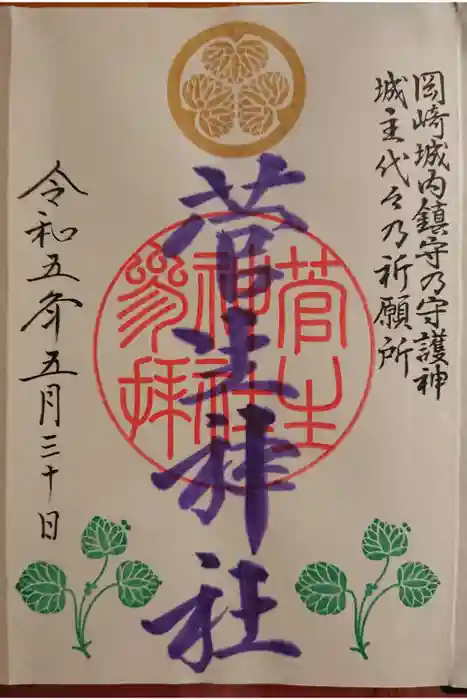 岡崎城内鎮守乃守護神
城主代々乃祈願所
菅生神社
菅生
神社
參拝
令和五年五月三十日